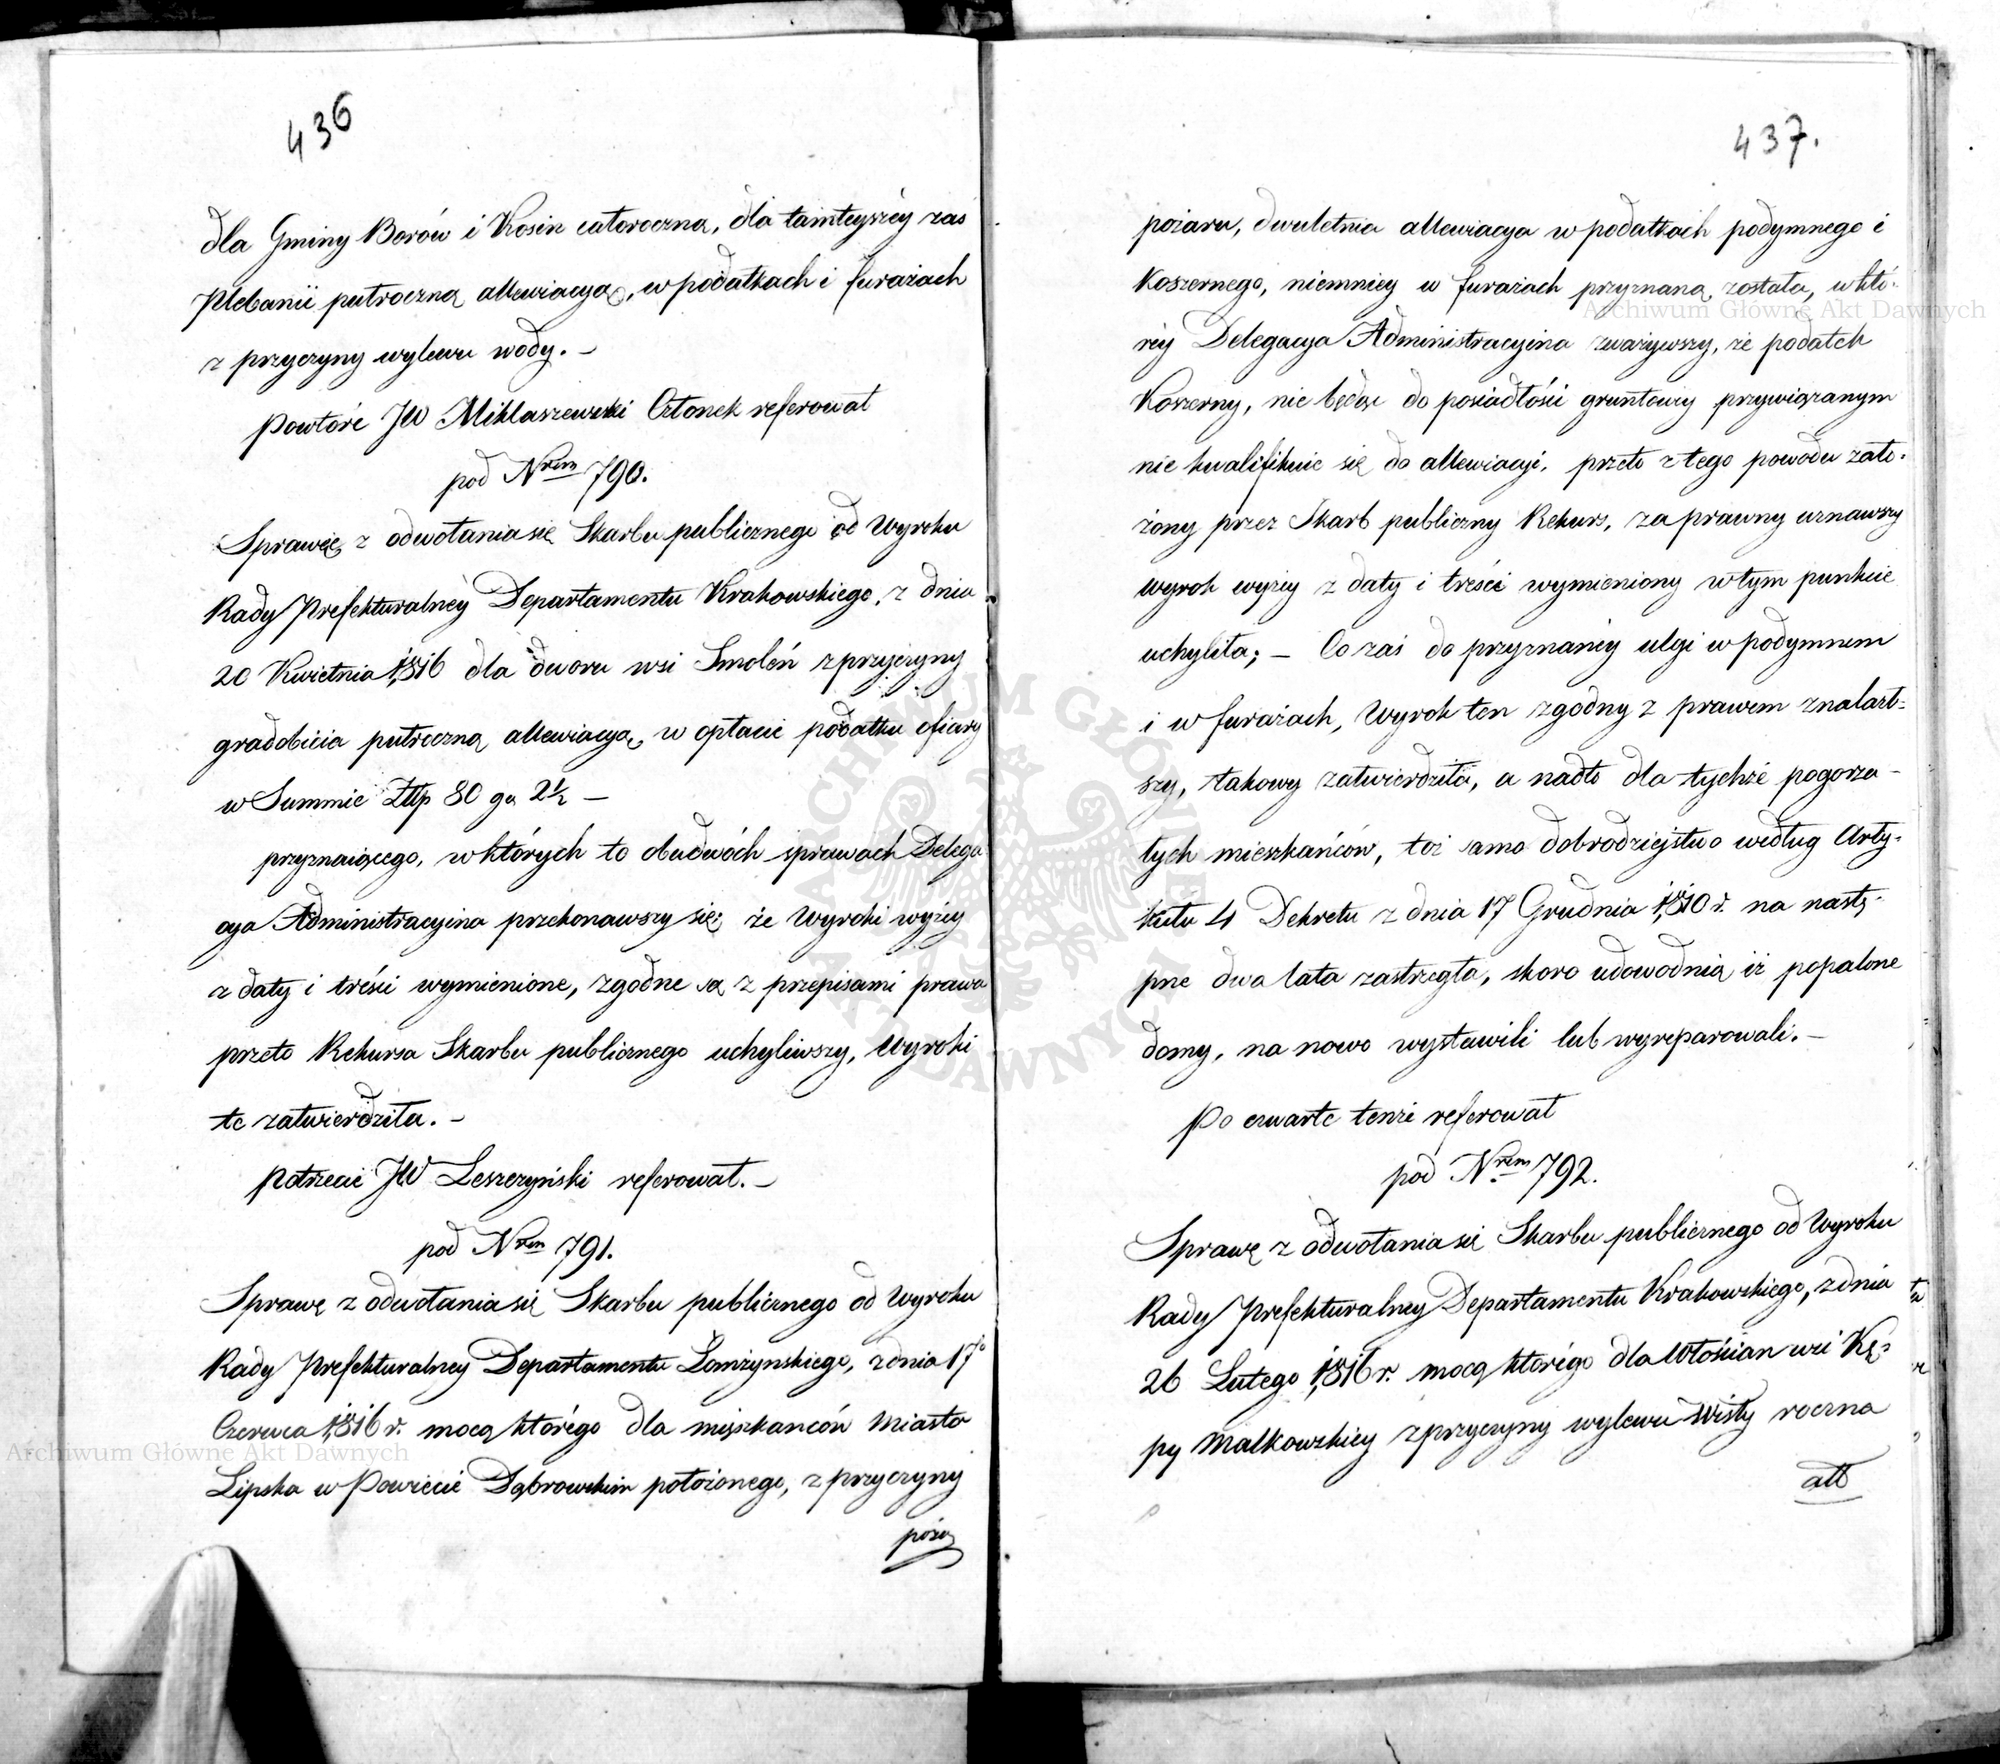 436
dla Gminy Borów i Kosin całoroczna, dla tamteyszéy zaś
Plebanii pułroczną allewiacyą, w podatkach i furażach
z przyczyny wylewu wody. –
Powtóre JW Miklaszewski Członek referował
pod Nrem 790.
Sprawę z odwołania się Skarbu publicznego od Wyroku
Rady Prefekturalnéy Departamentu Krakowskiego, z dnia
20 Kwietnia 1816 dla dworu wsi Smoleń z przyczyny
gradobicia pułroczną allewiacyą, w opłacie podatku ofiary
w Summie Złłp 80 gr 2½ –
przyznaiącego, w których to obudwóch sprawach Delega
cya Administracyina przekonawszy się; że Wyroki wyżéy
z daty i treści wymienione, zgodne są z przepisami prawa
przeto Rekursa Skarbu publicznego uchyliwszy, Wyroki
te zatwierdziła. –
Potrzecie JW Leszczyński referował. –
pod Nrem 791.
Sprawę z odwołania się Skarbu publicznego od Wyroku
Rady Prefekturalney Departamentu Łomżyńskiego, z dnia 17o
Czerwca 1816 r. mocą którégo dla mięszkanców Miasta
Lipska w Powiecie Dąbrowskim położonego, z przyczyny
poża
437.
pożaru, dwuletnia allewiacya w podatkach podymnego i
Koszernego, niemniey w furażach przyznaną została, w któ-
réy Delegacya Administracyina zważywszy, że podatek
Koszerny, nie będąc do posiadłości gruntowéy przywiązanym
nie kwalifikuie się do allewiacyi, przeto z tego powodu zało-
żony przez Skarb publiczny Rekurs, za prawny uznawszy
Wyrok wyżéy z daty i treści wymieniony w tym punkcie
uchyliła; – Co zaś do przyznanéy ulgi w podymnem
i w furażach, Wyrok ten zgodny z prawem znalazł-
szy, takowy zatwierdziła, a nadto dla tychże pogorza-
łych mieszkańców, toż samo dobrodziejstwo według Arty-
kułu 4 Dekretu z dnia 17 Grudnia 1810 r. na nastę-
pne dwa lata zastrzegła, skoro udowodnią iż popalone
domy, na nowo wystawili lub wyreparowali. –
Po czwarte tenże referował
pod Nrem 792.
Sprawę z odwołania się Skarbu publicznego od Wyroku
Rady Prefekturalney Departamentu Krakowskiego, z dnia
26 Lutego 1816 r. mocą którégo dla Włościan wsi Kę-
py Małkowskiey z przyczyny wylewu Wisły roczna
all
Archiwum Główne Akt Dawnych
Archiwum Główne Akt Dawnych
ARCHIWUM GŁÓWNE AKT DAWNYCH